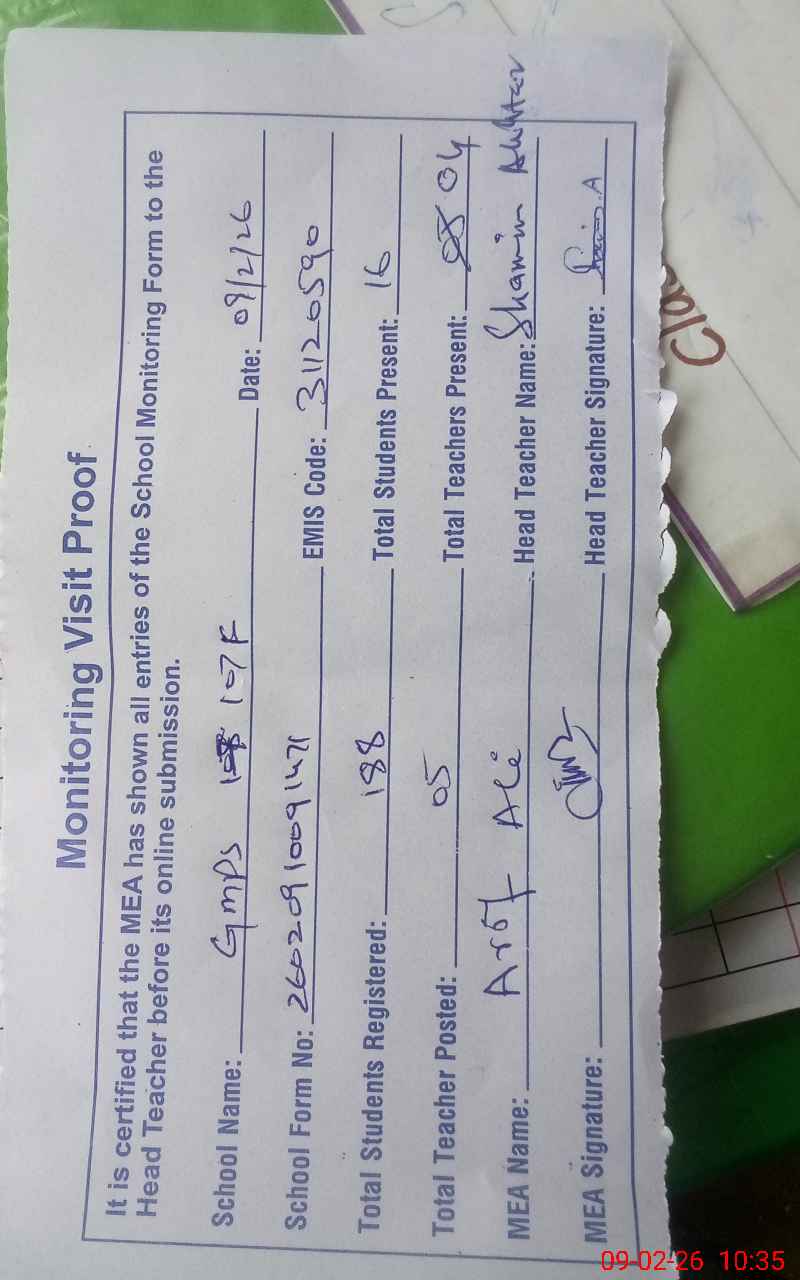 Monitoring Visit Proof
It is certified that the MEA has shown all entries of the School Monitoring Form to the
Head Teacher before its online submission.
School Name: GMPS 107F Date: 09/2/26
School Form No: 26020910091471 EMIS Code: 31120590
Total Students Registered: 188 Total Students Present: 16
Total Teacher Posted: 05 Total Teachers Present: 04
MEA Name: Arif Ali Head Teacher Name: Shamim Akhter
MEA Signature: Head Teacher Signature:
09-02-26 10:35